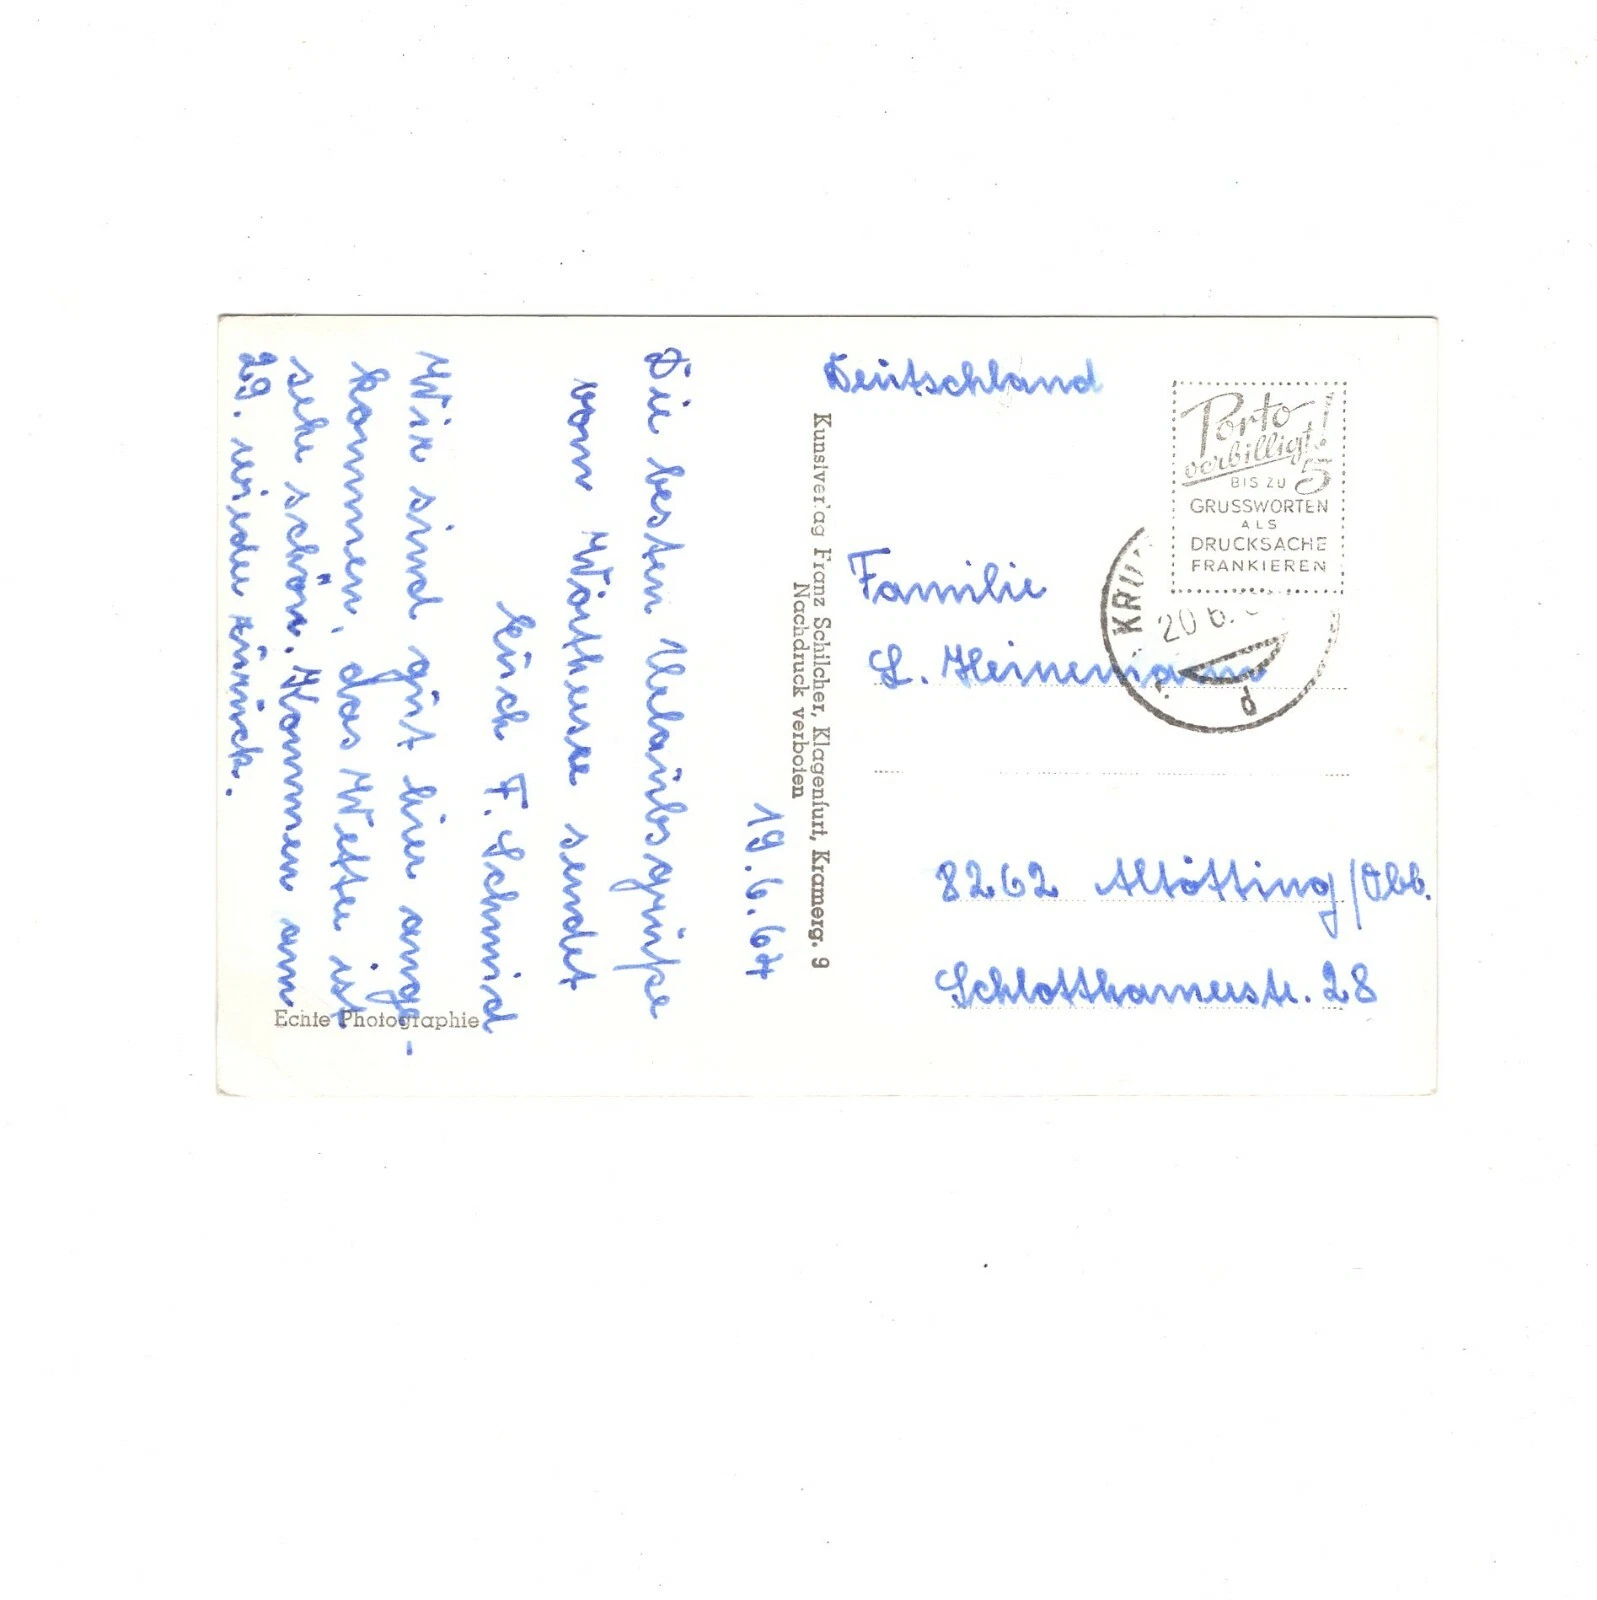 19.6.67
Die besten Urlaubsgrüße
vom Wörthersee sendet
Euch F. Schmid
Wir sind gut hier ange-
kommen, das Wetter ist
sehr schön. Kommen am
29. wieder zurück.
Echte Photographie
Kunstverlag Franz Schilcher, Klagenfurt, Kramerg. 9
Nachdruck verboten
Deutschland
Porto
verbilligt!
BIS ZU 5
GRUSSWORTEN
ALS
DRUCKSACHE
FRANKIEREN
20 6.
d
Familie
L. Heinemann
8262 Altötting/Obb.
Schlotthamerstr. 28